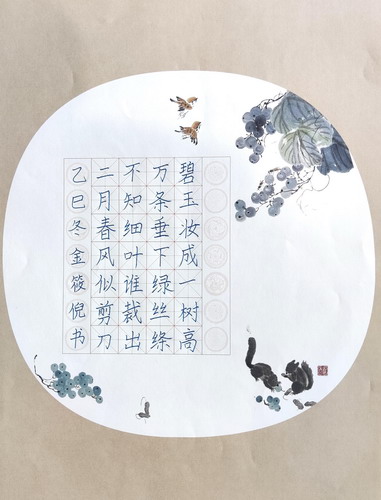 碧玉妆成一树高
万条垂下绿丝绦
不知细叶谁裁出
二月春风似剪刀
乙巳冬金筱倪书